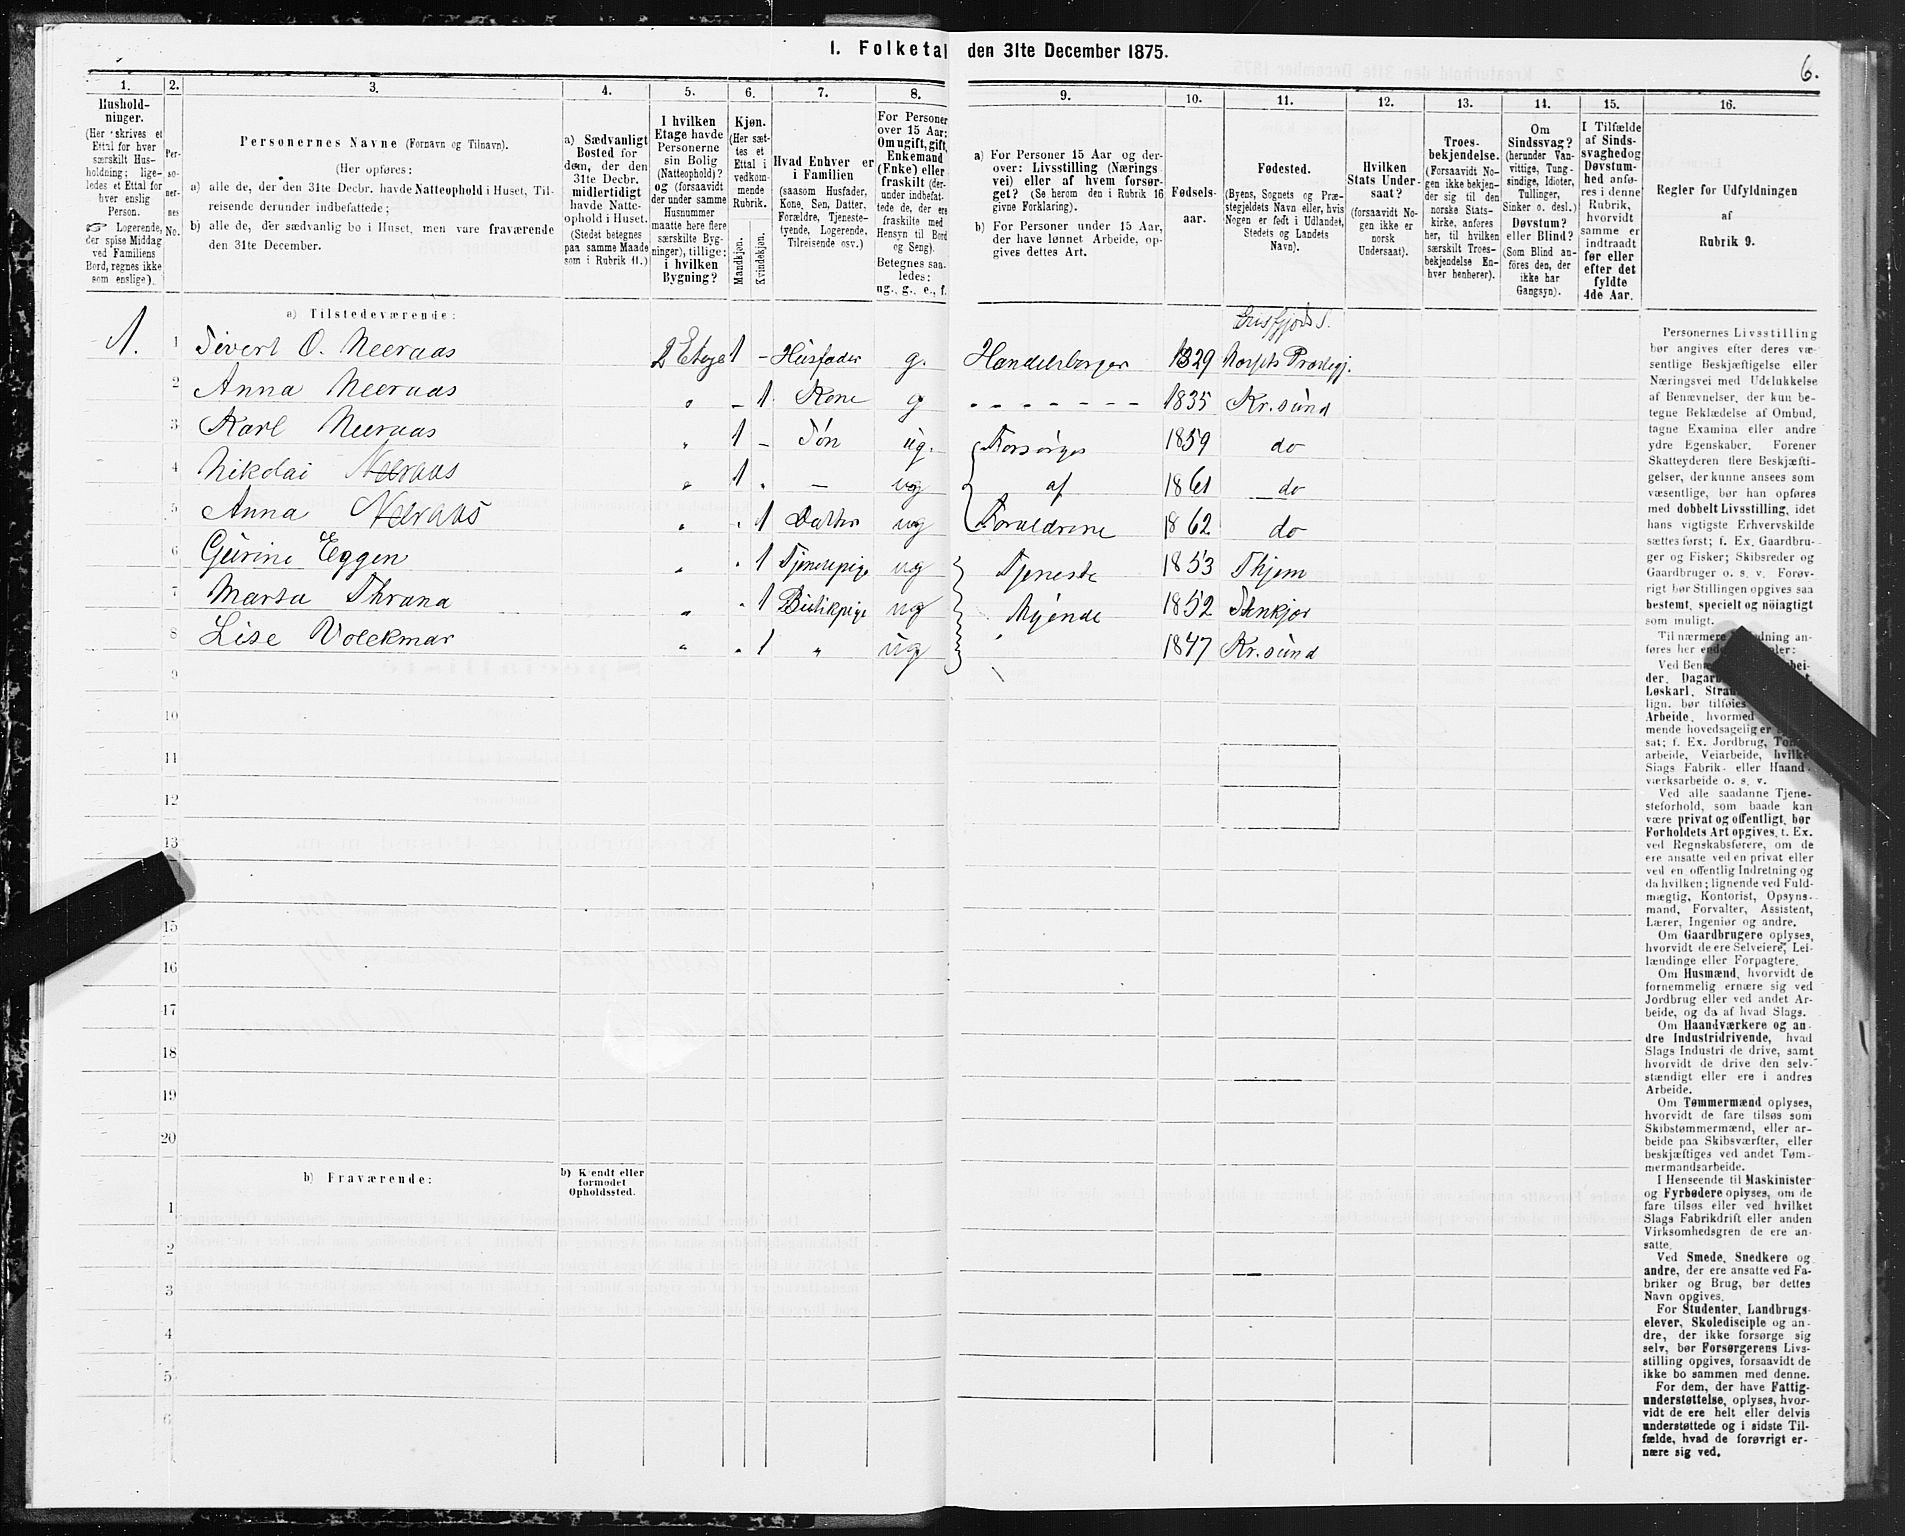 1. Folketal den 31te December 1875.
6.
1. 2. 3. 4. 5. 6. 7. 8. 9. 10. 11. 12. 13. 14. 15. 16.
Hushold-
ninger.
(Her skrives et
Ettal for hver
særskilt Hus-
holdning; lige-
ledes et Ettal for
hver enslig
Person.
Logerende,
der spise Middag
ved Familiens
Bord, regnes ikke
som enslige).
Per-
so-
ner-
nes
No.
Personernes Navne (Fornavn og Tilnavn).
(Her opføres:
a) alle de, der den 31te Decbr. havde Natteophold i Huset, Til-
reisende derunder indbefattede;
b) alle de, der sædvanlig bo i Huset, men vare fraværende
den 31te December.
a) Sædvanligt
Bosted for
dem, der den
31te Decbr.
midlertidigt
havde Natte-
ophold i Huset.
(Stedet betegnes
paa samme Maade
som i Rubrik 11.)
I hvilken
Etage havde
Personerne
sin Bolig
(Natteophold)?
og (forsaavidt
der under samme
Husnummer
maatte here flere
særskilte Byg-
ninger), tillige:
i hvilken
Bygning?
Kjøn.
(Her sæt-
tes et
Ettal i
vedkom-
mende
Rubrik.
Mandkjøn.
Kvindekjøn.
Hvad Enhver er
i Familien
(saasom Husfader,
Kone, Søn, Datter,
Forældre, Tjeneste-
tyende, Logerende,
Tilreisende osv.)
For Personer
over 15 Aar:
Om ugift, gift,
Enkemand
(Enke) eller
fraskilt (der-
under indbefat-
tede de, der ere
fraskilte med
Hensyn til Bord
og Seng).
Betegnes saa-
ledes:
ug., g., e., f.
a) For Personer 15 Aar og der-
over: Livsstilling (Nærings-
vei) eller af hvem forsør-
get? (Se herom den i Rubrik 16
givne Forklaring).
b) For Personer under 15 Aar,
der have lønnet Arbeide, op-
gives dettes Art.
Fødsels-
aar.
Fødested.
(Byens, Sognets og Præ-
stegjeldets Navn eller, hvis
Nogen er født i Udlandet,
Stedets og Landets
Navn).
Hvilken
Stats Under-
saat?
(forsaavidt No-
gen ikke er
norsk
Undersaat).
Troes-
bekjendelse.
(Forsaavidt No-
gen ikke bekjen-
der sig til den
norske Stats-
kirke, anføres
her, til hvilken
særskilt Troes-
bekjendelse En-
hver henhører).
Om
Sindssvag?
(herunder Van-
vittige, Tung-
sindige, Idioter,
Tullinger,
Sinker o. desl.)
Døvstum?
eller Blind?
(Som Blind an-
føres den, der
ikke har
Gangsyn).
I Tilfælde
af Sinds-
svaghed og
Døvstum-
hed anfø-
res i denne
Rubrik,
hvorvidt
samme er
indtraadt
før eller
efter det
fyldte
4de Aar.
Regler for Udfyldningen
af
Rubrik 9.
a) Tilstedeværende:
Eris fjords S.
1. 1 Sivert O. Neeraas 2 Etage 1 – Husfader g. Handelsborger 1829 Næssets Præstegj.
2 Anna Neeraas „ – 1 Kone g - - - - - - - 1835 Kr.sund
3 Karl Neeraas „ 1 – Søn ug. Forsørges 1859 do
4 Nikolai Neeraas „ 1 „ — ug af 1861 do
5 Anna Neeraas „ „ 1 Datter ug Forældrene 1862 do
6 Gurine Eggen „ „ 1 Tjenestepige ug Tjeneste 1853 Thjem
7 Marta Thrana „ „ 1 Butikpige ug tÿende 1852 Stenkjær
8 Lise Volckmar „ „ 1 „ ug „ 1847 Kr.sund
9
10
11
12
13
15
16
17
18
19
20
b) Fraværende:
b) Kjendt eller
formodet
Opholdssted.
1
2
3
4
5
6
Personernes Livsstilling
bør angives efter deres væ-
sentlige Beskjæftigelse eller
Næringsvei med Udelukkelse
af Benævnelser, der kun be-
tegne Beklædelse af Ombud,
tagne Examina eller andre
ydre Egenskaber. Forener
Skatteyderen flere Beskjæfti-
gelser, der kunne ansees som
væsentlige, bør han opføres
med dobbelt Livsstilling, idet
hans vigtigste Erhvervskilde
sættes først; f. Ex. Gaardbru-
ger og Fisker; Skibsreder og
Gaardbruger o. s. v. Forøv-
rigt bør Stillingen opgives saa
bestemt, specielt og nöiagtigt
som muligt.
Til nærmere ning an-
føres her ler:
Ved bei-
der, Dagar
Løskarl, Stra
lign. bør tilføies
Arbeide, hvormed
mende hovedsagelig er
sat; f. Ex. Jordbrug, Tom
arbeide, Veiarbeide, hvilke
Slags Fabrik- eller Haand-
værksarbeide o. s. v.
Ved alle saadanne Tjene-
steforhold, som baade kan
være privat og offentligt, bør
Forholdets Art opgives, t. Ex.
ved Regnskabsførere, om de
ere ansatte ved en privat eller
ved en offentlig Indretning og
da hvilken; lignende ved Fuld-
mægtig, Kontorist, Opsyns-
mand, Forvalter, Assistent,
Lærer, Ingeniør og andre.
Om Gaardbrugere oplyses,
hvorvidt de ere Selveiere, Lei-
lændinge eller Forpagtere.
Om Husmænd, hvorvidt de
fornemmelig ernære sig ved
Jordbrug eller ved andet Ar-
beide, og da af hvad Slags.
Om Haandværkere og an-
dre Industridrivende, hvad
Slags Industri de drive, samt
hvorvidt de drive den selv-
stændigt eller ere i andres
Arbeide.
Om Tømmermænd oplyses,
hvorvidt de fare tilsøs som
Skibstømmermænd, eller ar-
beide paa Skibsværfter, eller
beskjæftiges ved andet Tøm-
mermandsarbeide.
I Henseende til Maskinister
og Fyrbødere oplyses, om de
fare tilsøs eller ved hvilket
Slags Fabrikdrift eller anden
Virksomhedsgren de ere an-
satte.
Ved Smede, Snedkere og
andre, der ere ansatte ved Fa-
briker og Brug, bør dettes
Navn opgives.
For Studenter, Landbrugs-
elever, Skoledisciple og an-
dre, der ikke forsørge sig
selv, bør Forsørgerens Livs-
stilling opgives, forsaavidt de
ikke bo sammen med denne.
For dem, der have Fattig-
understøttelse, oplyses, hvor-
vidt de ere helt eller delvis
understøttede og i sidste Til-
fælde, hvad de forøvrigt er-
nære sig ved.